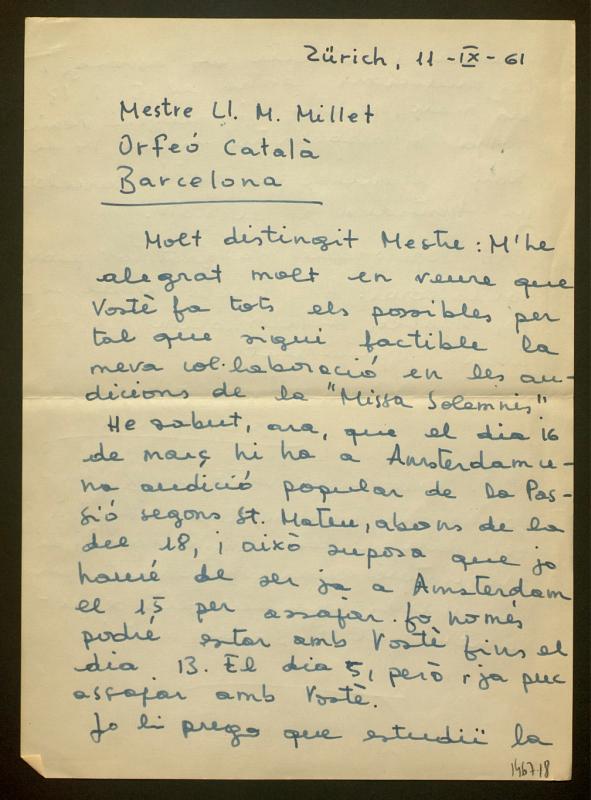 Zürich, 11 -IX- 61
Mestre Ll. M. Millet
Orfeó Català
Barcelona
Molt distingit Mestre: M'he
alegrat molt en veure que
Vostè fa tots els possibles per
tal que sigui factible la
meva col·laboració en les au-
dicions de la "Missa Solemnis".
He sabut, ara, que el dia 16
de març hi ha a Amsterdam u-
na audició popular de la Pas-
sió segons St. Mateu, abans de la
del 18, i això suposa que jo
hauré de ser ja a Amsterdam
el 15 per assajar. Jo només
podré estar amb Vostè fins el
dia 13. El dia 5, però, ja puc
assajar amb Vostè.
Jo li prego que estudiï la
146718